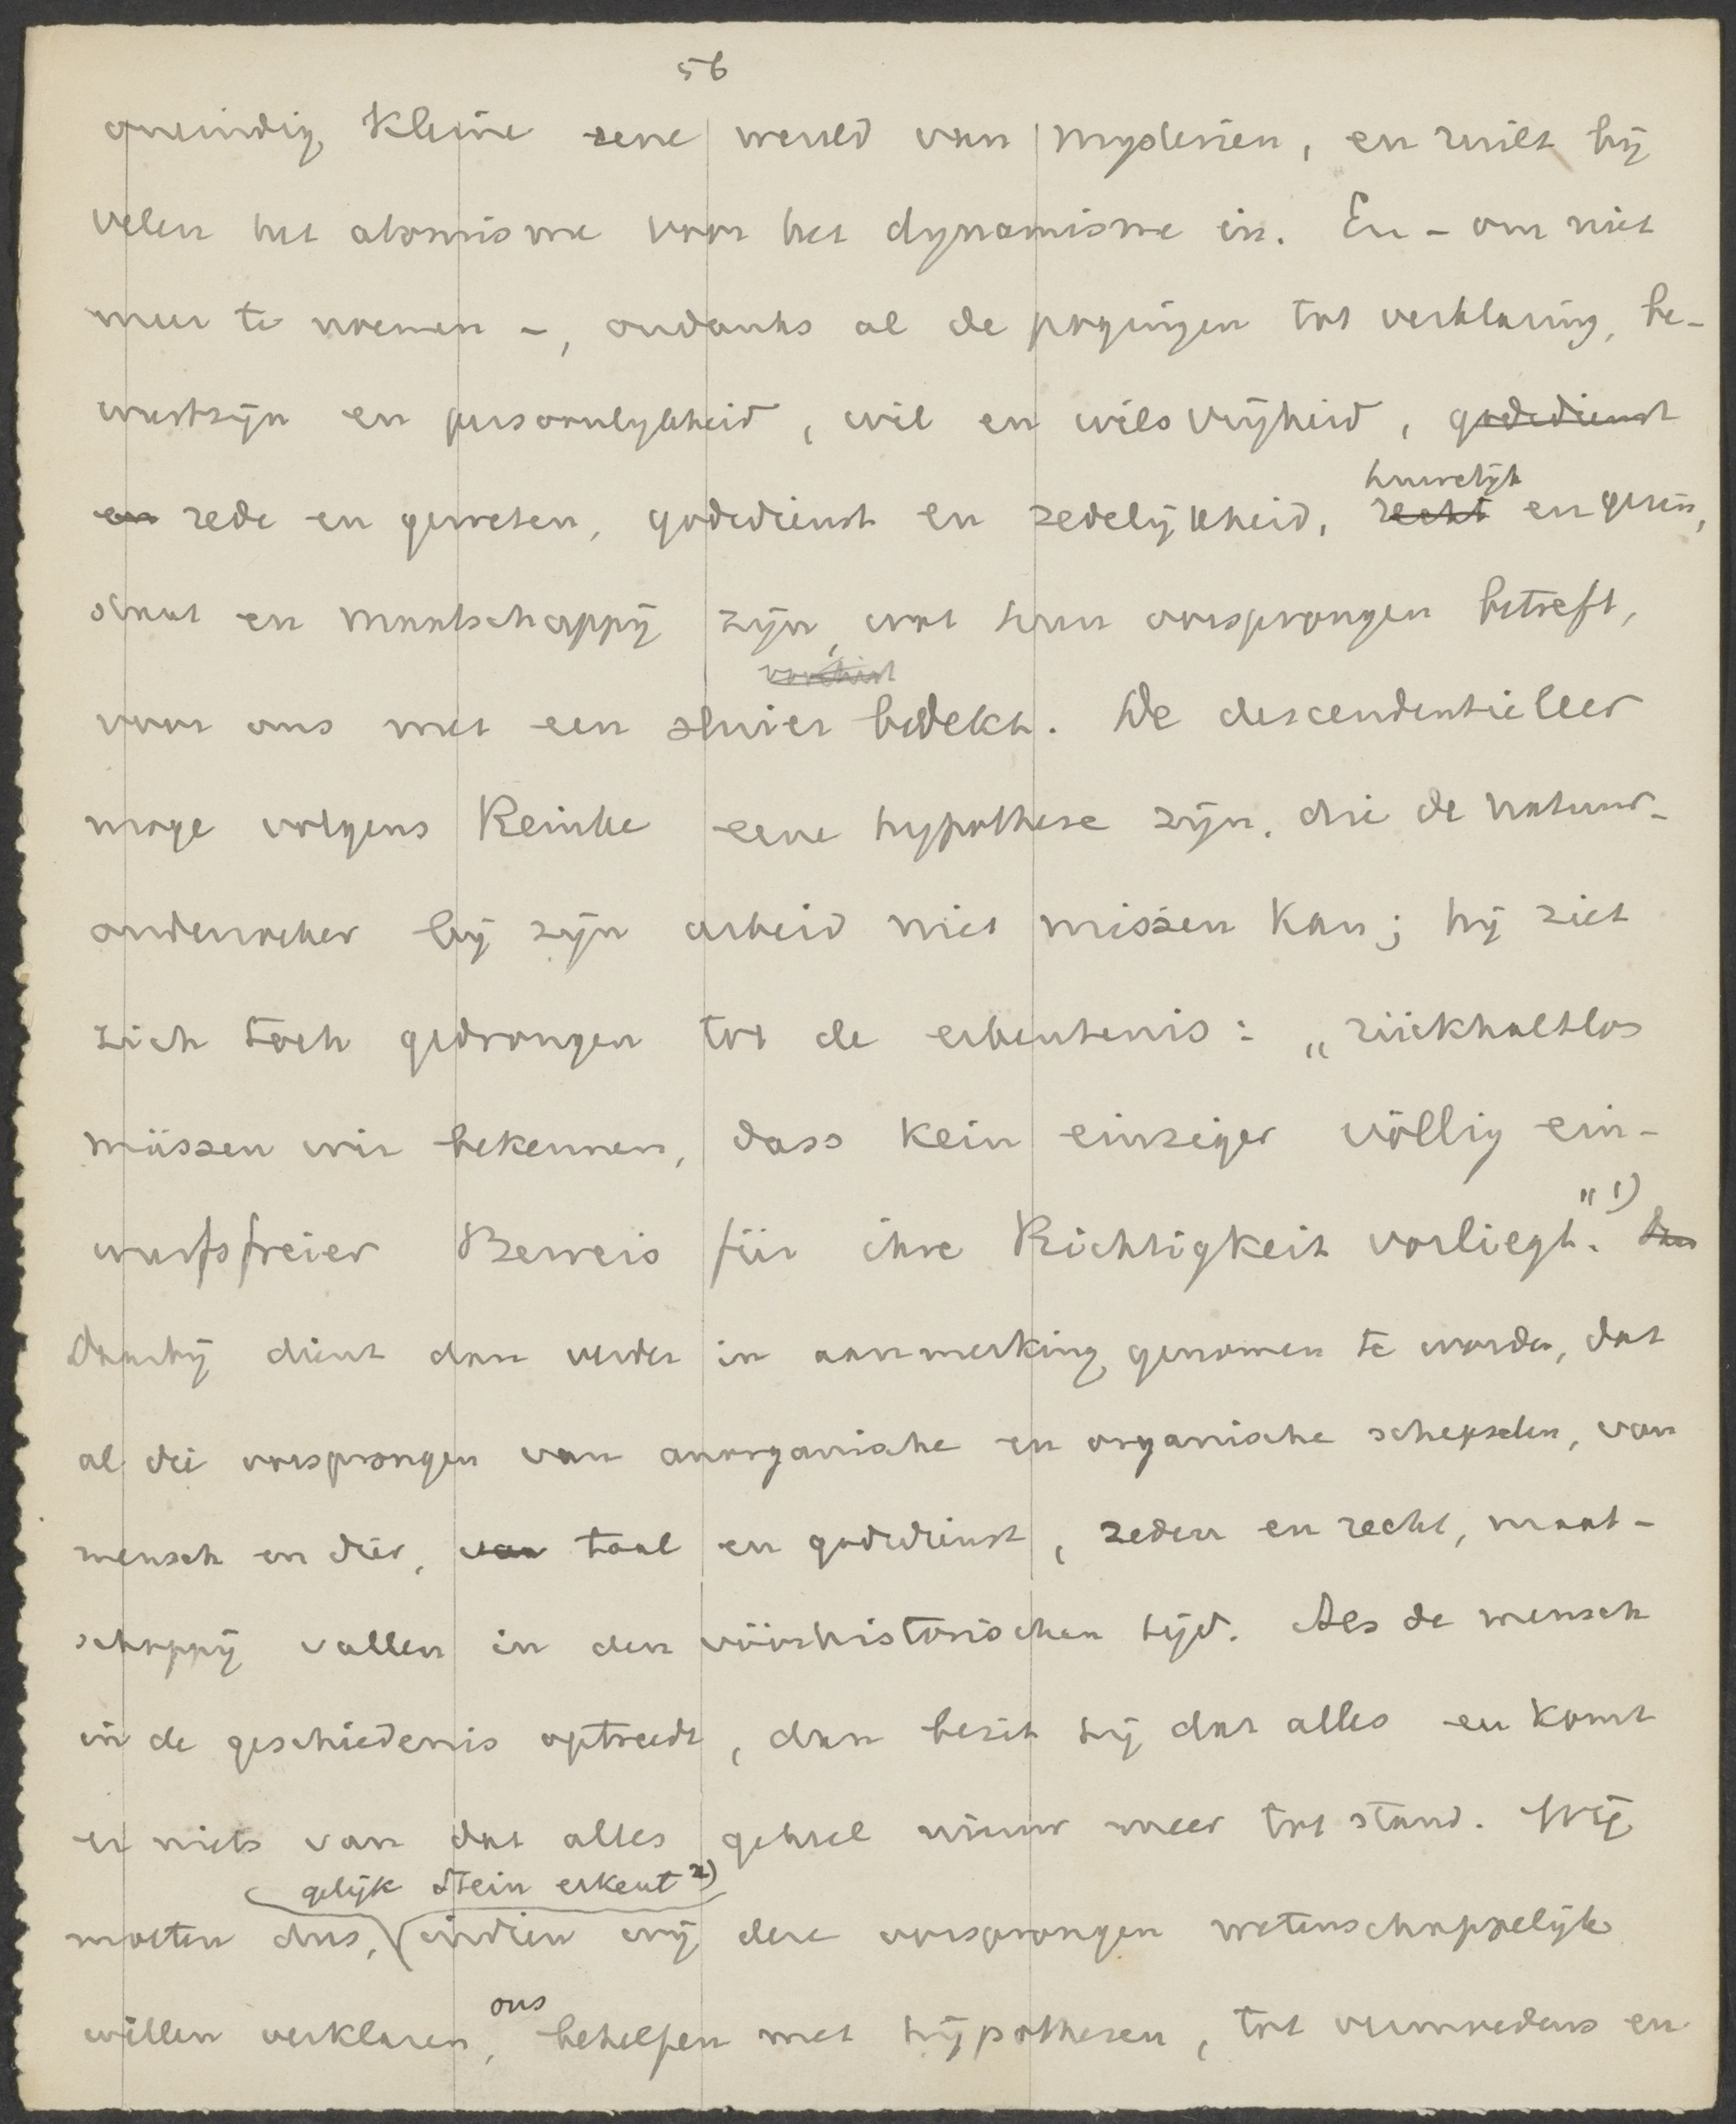 56
oneindig kleine eene wereld van mysteriën, en ruilt bij
velen het atomisme voor het dynamisme in. En - om niet
meer te noemen -, ondanks al de pogingen tot verklaring, be-
wustzijn en persoonlijkheid, wil en wilsvrijheid, godsdienst
en rede en geweten, godsdienst en zedelijkheid, recht huwelijk en gezin,
staat en maatschappij zijn, wat hun oorsprongen betreft,
voor ons met een sluier bedekt. De descendentieleer
moge volgens Reinke eene hypothese zijn, die de natuur-
onderzoeker bij zijn arbeid niet missen kan; hij ziet
zich toch gedrongen tot de erkentenis: „rückhaltlos
müssen wir bekennen, dass kein einziger völlig ein-
wurfsfreier Beweis für ihre Richtigkeit vorliegt." 1)
Daarbij dient dan verder in aanmerking genomen te worden, dat
al die oorsprongen van anorganische en organische schepselen, van
mensch en dier, van taal en godsdienst, zeden en recht, maat-
schappij vallen in den vóórhistorischen tijd. Als de mensch
in de geschiedenis optreedt, dan bezit hij dat alles en komt
er niets van dat alles geheel nieuw meer tot stand. Wij
gelijk Stein erkent 2)
moeten dus, indien wij deze oorsprongen wetenschappelijk
willen verklaren, ons behelpen met hypothesen, tot vermoedens en